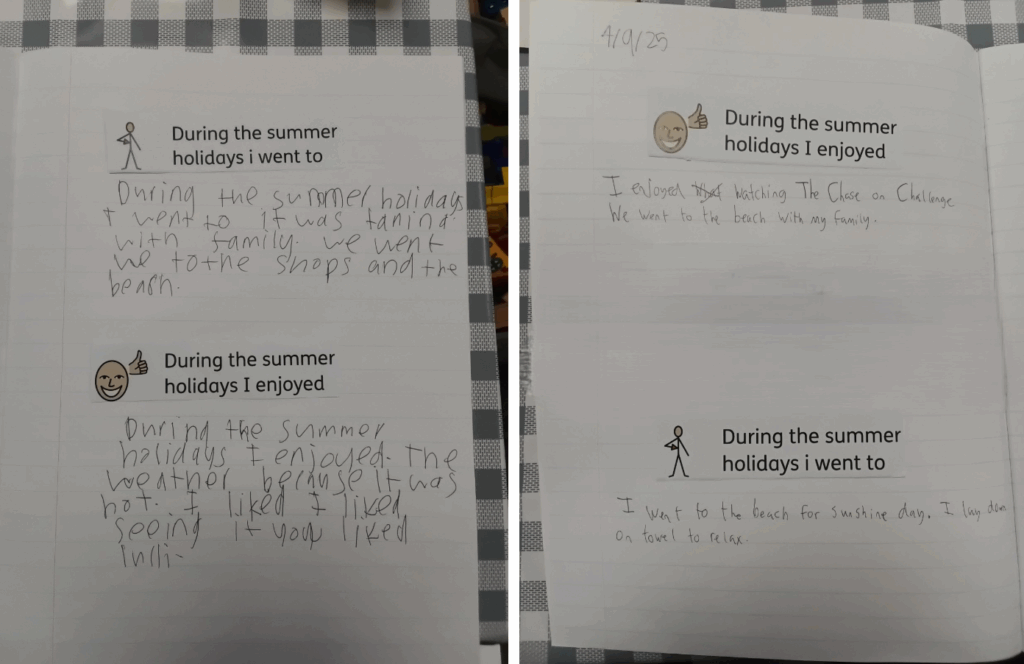 During the summer
holidays i went to
During the summer holidays
I went to it was tanind
with family. we went
we to the shops and the
beach.
During the summer
holidays I enjoyed
During the summer
holidays I enjoyed. The
weather because it was
hot. I liked I liked
seeing if you liked
4/9/25
During the summer
holidays I enjoyed
I enjoyed watching The Chase on Challenge
We went to the beach with my family.
During the summer
holidays i went to
I went to the beach for sunshine day. I lay down
on towel to relax.